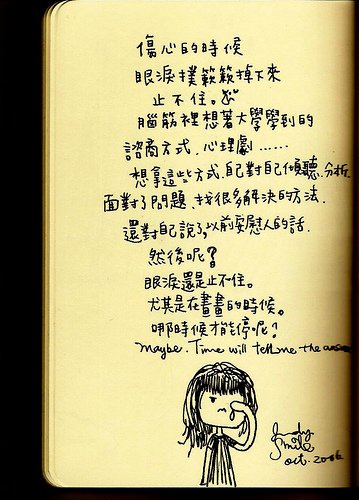 傷心的時候
眼淚撲簌簌掉下來
止不住。
腦筋裡想著大學學到的
諮商方式、心理劇......
想拿這些方式、自己對自己傾聽、分析、
面對了問題、找很多解決的方法、
還對自己說了以前安慰人的話、
然後呢?
眼淚還是止不住。
尤其是在畫畫的時候。
哪時候才能停呢?
maybe. Time will tell me the
Smile
oct. 2006